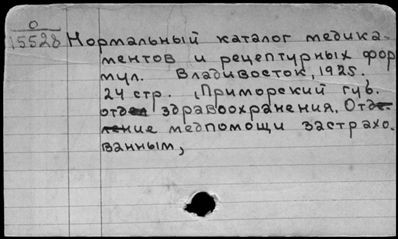 0
15528
Нормальный каталог медика-
ментов и рецептурных фор
мул. Владивосток, 1925,
24 стр. (Приморский губ.
отдел здравоохранения. Отде-
ление медпомощи застрахо-
ванным,